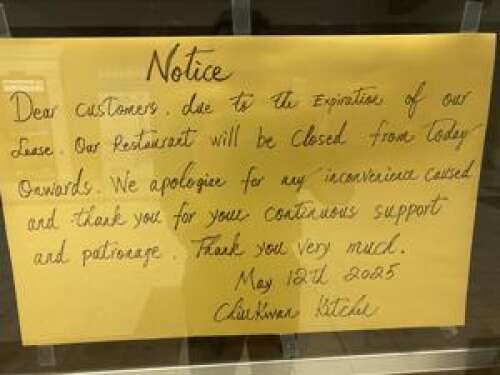 Notice
Dear customers. due to the Expiration of our
Lease. Our Restaurant will be Closed from today
Onwards. We apologize for any inconvenience caused
and thank you for your continuous support
and patronage. Thank you very much.
May 12th 2025
Kitchen